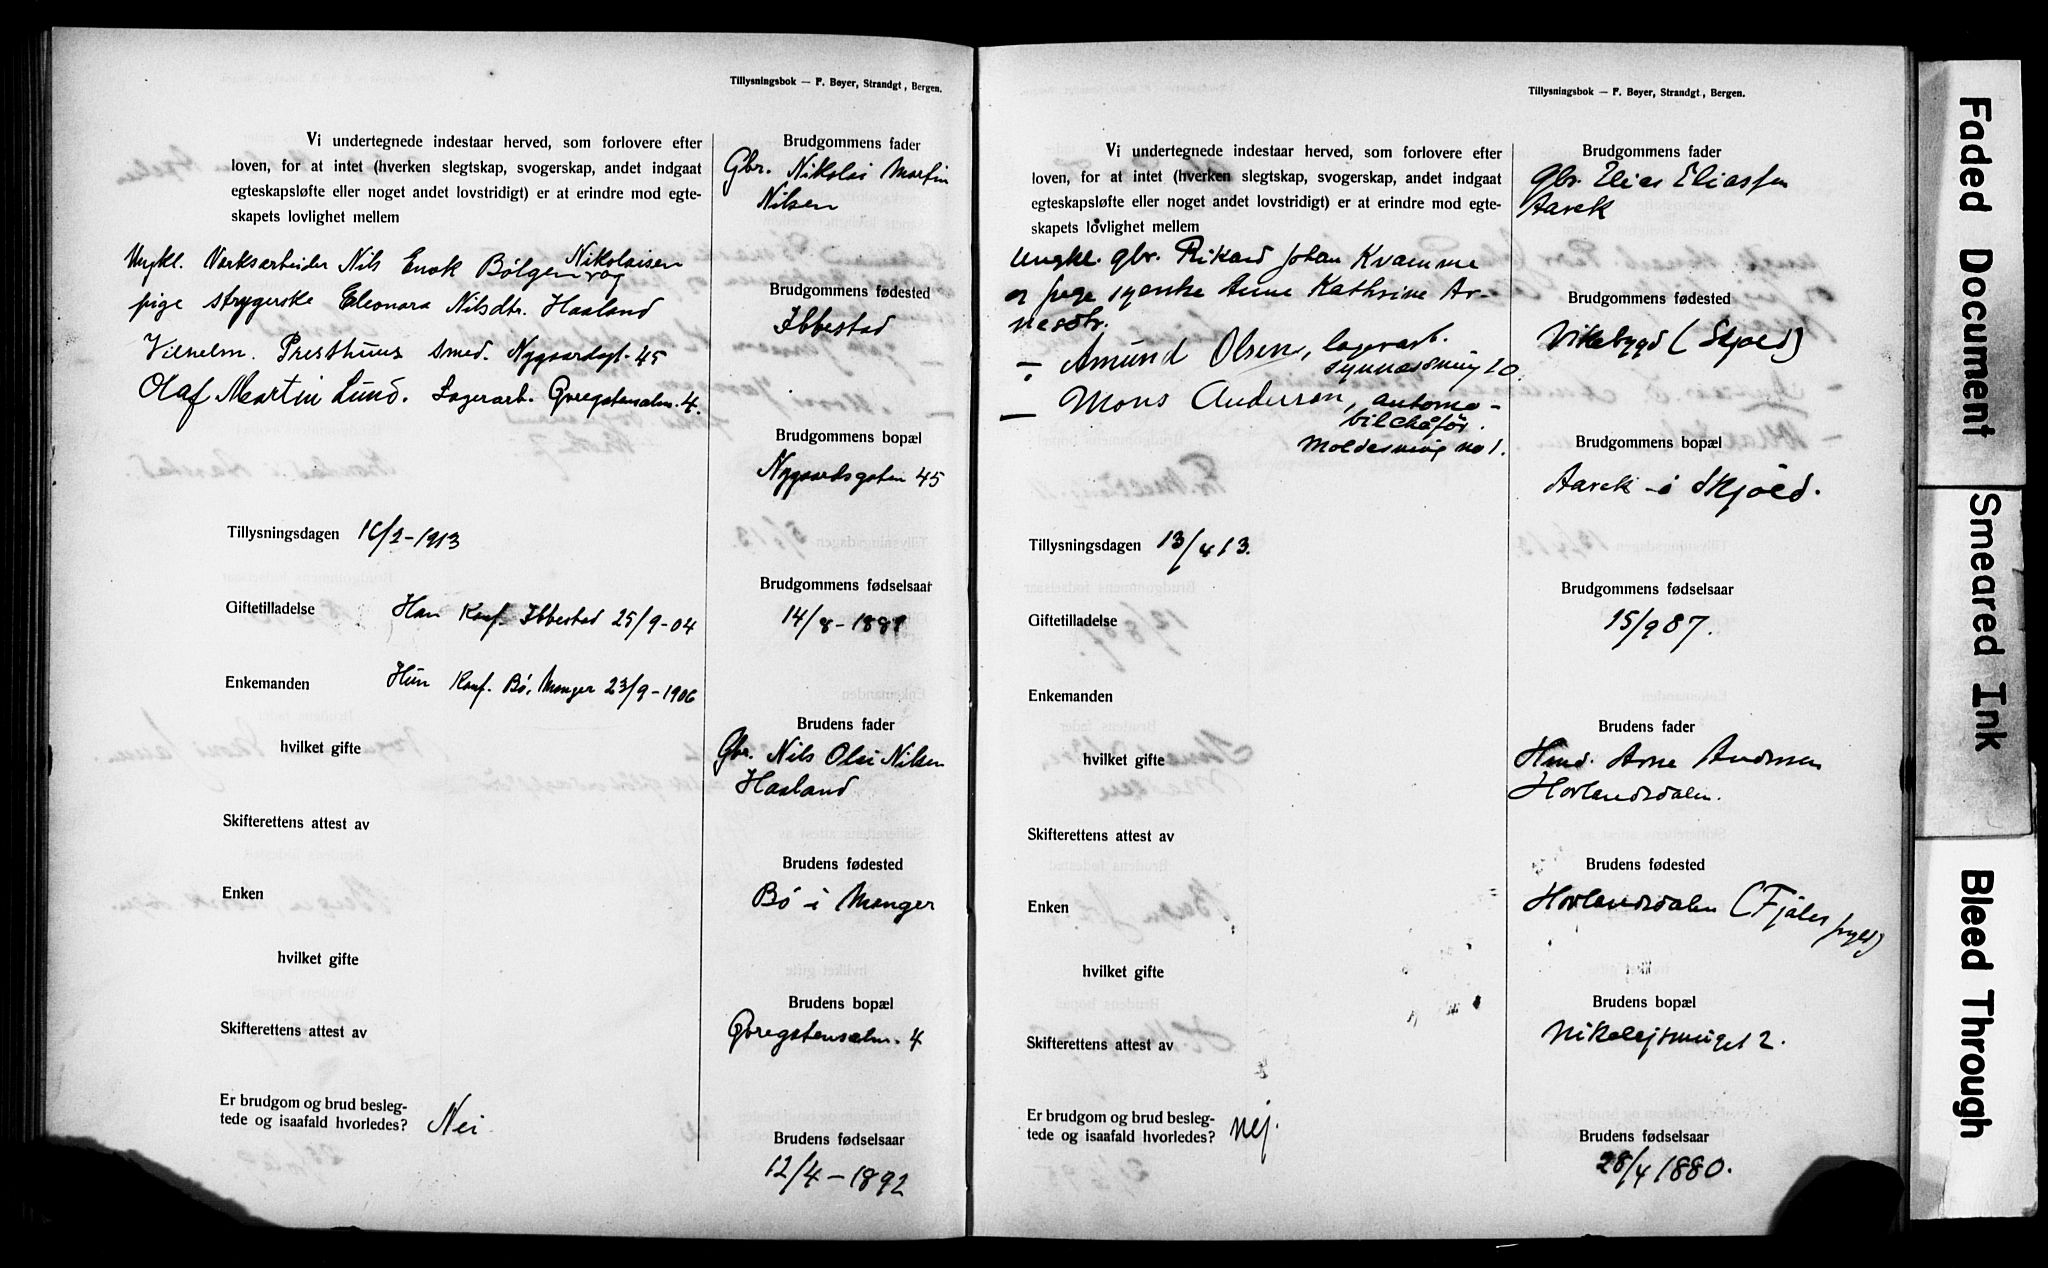 Tillysningsbok — F. Bøyer, Strandgt, Bergen.
Vi undertegnede indestaar herved, som forlovere efter
loven, for at intet (hverken slegtskap, svogerskap, andet indgaat
egteskapsløfte eller noget andet lovstridigt) er at erindre mod egte-
skapets lovlighet mellem
Ungkl. Verksarbeider Nils Enok Bølgen Nikolaisen og
pige strygerske Eleonora Nilsdtr. Haaland
Vilhelm. Presthuus smed. Nygaardsgt. 45
Olaf Martin Lund. Lagerarb. 4.
Tillysningsdagen 16/2-1913
Giftetilladelse Han Konf. Ibbestad 25/9-04
Enkemanden Hun Konf. Bø, Manger 23/9-1906
hvilket gifte
Skifterettens attest av
Enken
hvilket gifte
Skifterettens attest av
Er brudgom og brud besleg-
tede og isaafald hvorledes? Nei
Brudgommens fader
Gbr. Nikolai Martin
Nilsen
Brudgommens fødested
Ibbestad
Brudgommens bopæl
Nygaardsgaten 45
Brudgommens fødselsaar
14/8-1889
Brudens fader
Gbr. Nils Olai Nilsen
Haaland
Brudens fødested
Bø i Manger
Brudens bopæl
4
Brudens fødselsaar
12/4-1892
Tillysningsbok — F. Bøyer, Strandgt., Bergen.
Vi undertegnede indestaar herved, som forlovere efter
loven, for at intet (hverken slegtskap, svogerskap, andet indgaat
egteskapsløfte eller noget andet lovstridigt) er at erindre mod egte-
skapets lovlighet mellem
Ungkl. gbr. Rikard Johan Kvamme
og pige syerske Anne Kathrine Ar-
nesdtr.
— Amund Olsen, lagerarb.
20
— Mons Anderson, automo-
bilchåfør.
Moldesmug no 1.
Tillysningsdagen 13/4 13.
Giftetilladelse
Enkemanden
hvilket gifte
Skifterettens attest av
Enken
hvilket gifte
Skifterettens attest av
Er brudgom og brud besleg-
tede og isaafald hvorledes? nej.
Brudgommens fader
gbr. Elias Eliassen
Aarek
Brudgommens fødested
Vikebygd (Skjold)
Brudgommens bopæl
Aarek i Skjold.
Brudgommens fødselsaar
15/9 87.
Brudens fader
Hmd. Arne Andersen
Hovlandsdalen.
Brudens fødested
Hovlandsdalen (Fjaler
Brudens bopæl
Nikolejsmuget 2.
Brudens fødselsaar
28/4 1880.
Faded Document
Smeared Ink
Bleed Through